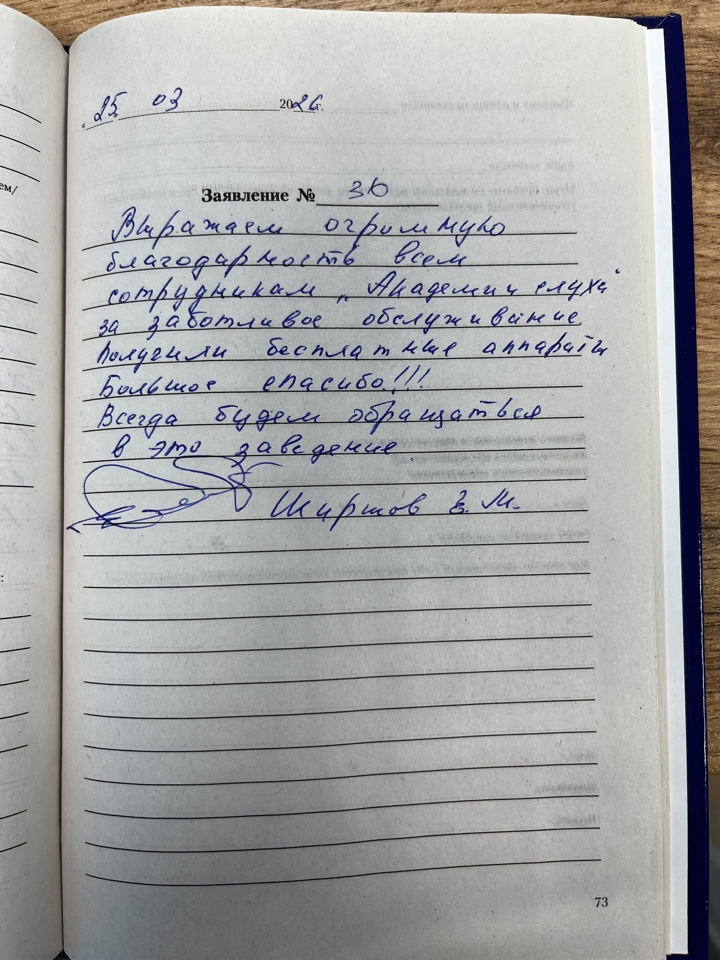 25 03 2026г.
Заявление № 36
Выражаем огромную
благодарность всем
сотрудникам „Академии слуха"
за заботливое обслуживание
Получили бесплатные аппараты
Большое спасибо!!!
Всегда будем обращаться
в это заведение
Ширшов М.
73
ем/
: